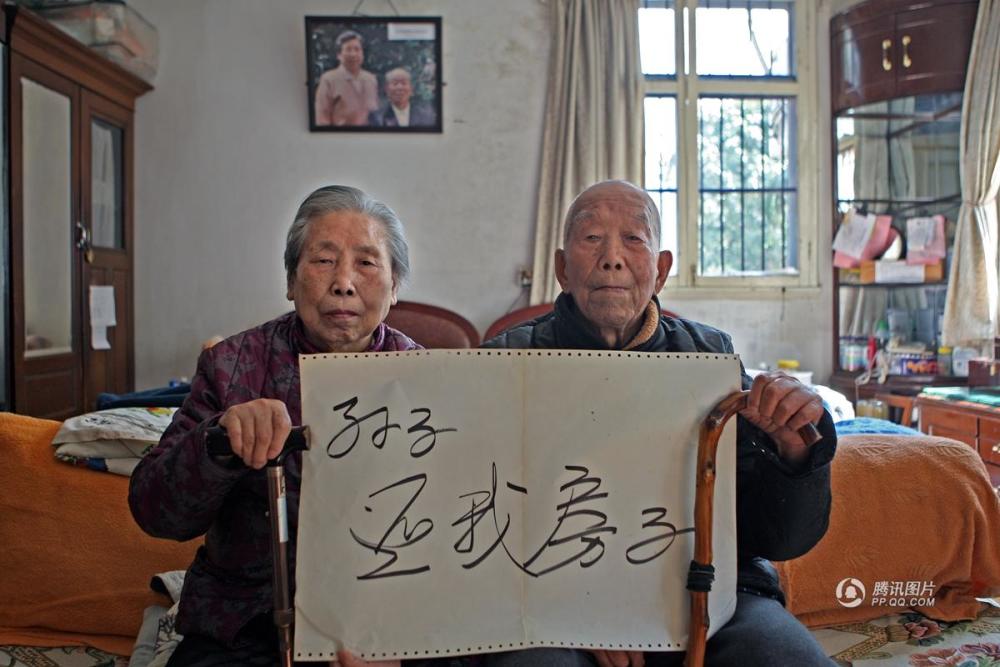 孙子
还我房子
腾讯图片
PP.QQ.COM